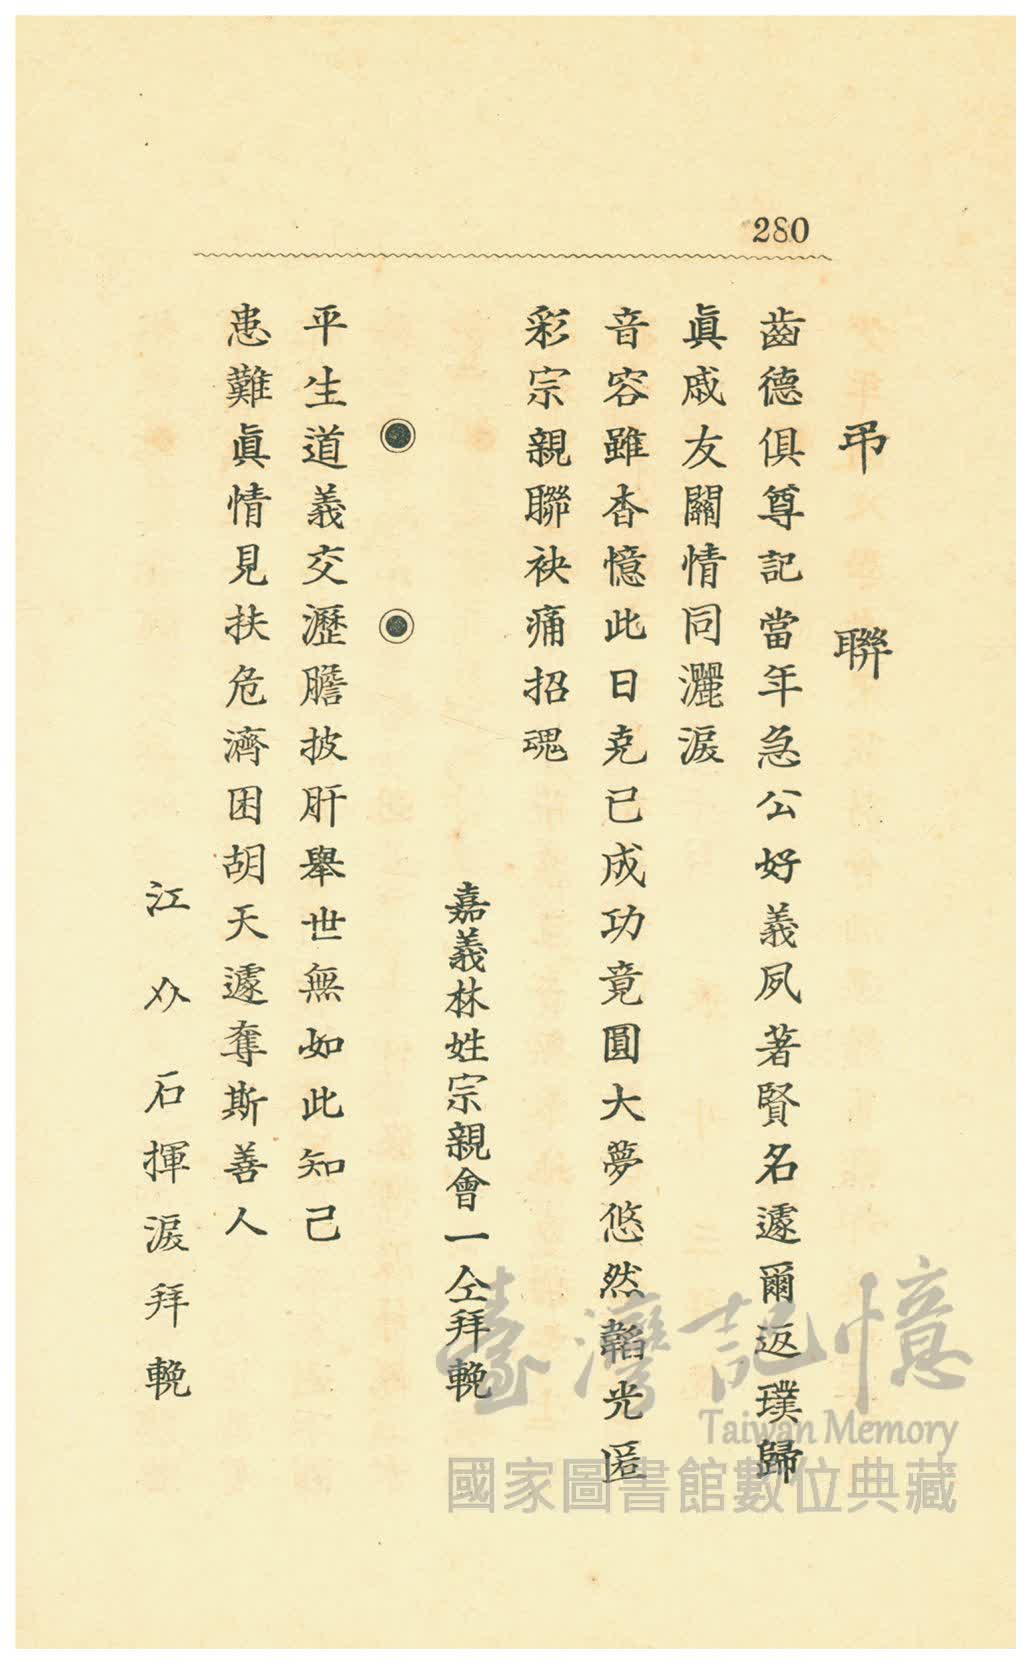 280
弔聯
齒德俱尊記當年急公好義夙著賢名遽爾返璞歸
眞戚友關情同灑淚
音容雖杳憶此日克已成功竟圓大夢悠然韜光匿
彩宗親聯袂痛招魂
嘉義林姓宗親會一仝拜輓
平生道義交瀝膽披肝舉世無如此知己
患難眞情見扶危濟困胡天遽奪斯善人
江石揮淚拜輓
臺灣記憶
Taiwan Memory
國家圖書館數位典藏